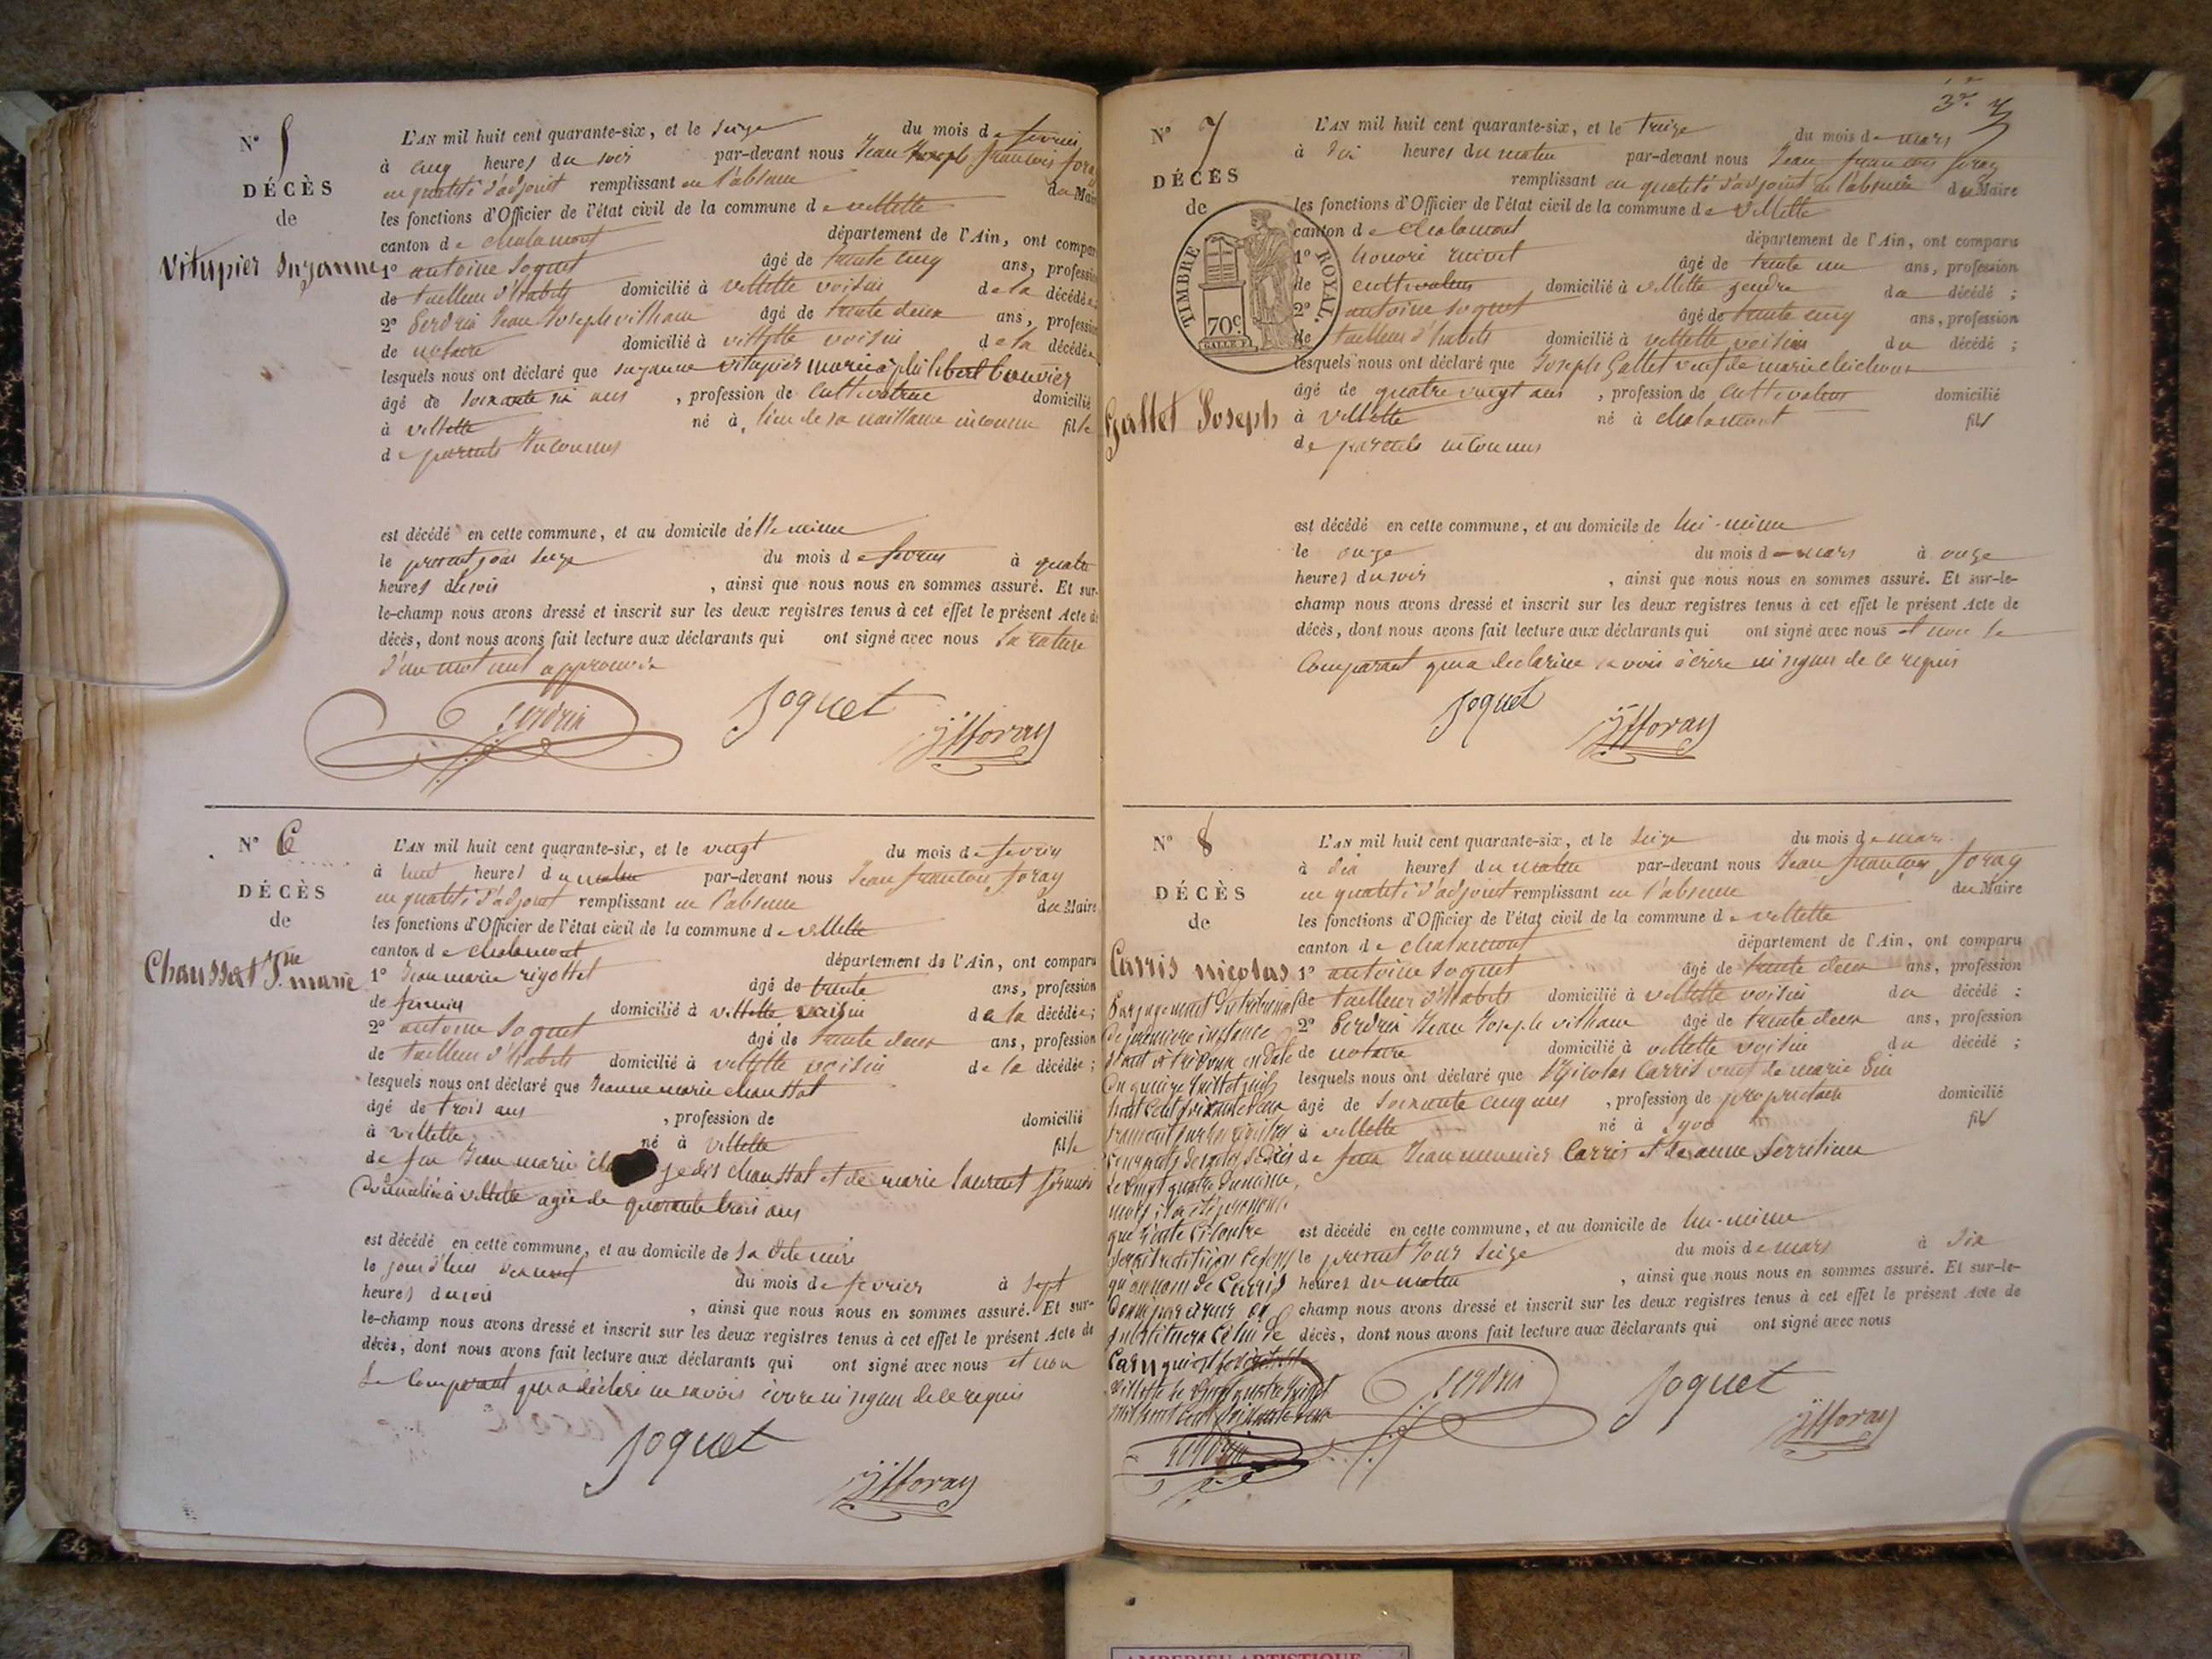 N° 5
DÉCÈS
de
Vitupier Suzanne
L'AN mil huit cent quarante-six, et le seize du mois de fevrier
à cinq heures du soir par-devant nous Jean Joseph francois foray
en qualité d'adjoint remplissant en l'absence du Maire
les fonctions d'Officier de l'état civil de la commune de villette
canton de chalamont département de l'Ain, ont comparu
1° antoine Soquet âgé de trente cinq ans, profession
de tailleur d'habits domicilié à villette voisin de la décédée;
2° Perdrix Jean Joseph vilhaume âgé de trente deux ans, profession
de notaire domicilié à villette voisin de la décédée
lesquels nous ont déclaré que suzanne vitupier mariée à philibert bouvier
âgé de soixante six ans , profession de cultivatrice domicilié
à villette né à lieu de sa naissance inconnu fille
de parents inconnus
est décédé en cette commune, et au domicile d'elle même
le présent jour seize du mois de fevrier à quatre
heures du soir , ainsi que nous nous en sommes assuré. Et sur-
le-champ nous avons dressé et inscrit sur les deux registres tenus à cet effet le présent Acte de
décès, dont nous avons fait lecture aux déclarants qui ont signé avec nous la rature
d'un mot nul approuvée
Perdrix Soquet JFforay
N° 6
DÉCÈS
de
Chaussat Jne marie
L'AN mil huit cent quarante-six, et le vingt du mois de fevrier
à huit heures du matin par-devant nous Jean francois foray
en qualité d'adjoint remplissant en l'absence du Maire
les fonctions d'Officier de l'état civil de la commune de villette
canton de chalamont département de l'Ain, ont comparu
1° Jean marie rigottet âgé de trente ans, profession
de fermier domicilié à villette voisin de la décédée;
2° antoine Soquet âgé de trente deux ans, profession
de tailleur d'habits domicilié à villette voisin de la décédée;
lesquels nous ont déclaré que Jeanne marie chaussat
âgé de trois ans , profession de domicilié
à villette né à villette fille
de feu Jean marie je dis chaussat et de marie laurent fermier
domiciliée à villette agée de quarante trois ans
est décédé en cette commune, et au domicile de sa dite mère
le jour d'hier dix neuf du mois de fevrier à sept
heures du soir , ainsi que nous nous en sommes assuré. Et sur-
le-champ nous avons dressé et inscrit sur les deux registres tenus à cet effet le présent Acte de
décès, dont nous avons fait lecture aux déclarants qui ont signé avec nous et non
le comparant qui a déclaré ne savoir écrire ni signer de ce requis
Soquet JFforay
N° 7
DÉCÈS
de
TIMBRE ROYAL.
70c
Gallet Joseph
L'AN mil huit cent quarante-six, et le treize du mois de mars
à dix heures du matin par-devant nous Jean francois foray
remplissant en qualité d'adjoint en l'absence du Maire
les fonctions d'Officier de l'état civil de la commune de villette
canton de chalamont département de l'Ain, ont comparu
1° honoré âgé de trente un ans, profession
de cultivateur domicilié à villette gendre du décédé;
2° antoine soquet âgé de trente cinq ans, profession
de tailleur d'habits domicilié à villette voisin du décédé;
lesquels nous ont déclaré que Joseph Gallet veuf de marie
âgé de quatre vingt ans , profession de cultivateur domicilié
à villette né à chalamont fils
de parents inconnus
est décédé en cette commune, et au domicile de lui-même
le onze du mois de mars à onze
heures du soir , ainsi que nous nous en sommes assuré. Et sur-le-
champ nous avons dressé et inscrit sur les deux registres tenus à cet effet le présent Acte de
décès, dont nous avons fait lecture aux déclarants qui ont signé avec nous et non le
comparant qui a declaré ne savoir écrire ni signer de ce requis
Soquet JFforay
N° 8
DÉCÈS
de
Carris nicolas
L'AN mil huit cent quarante-six, et le seize du mois de mars
à dix heures du matin par-devant nous Jean francois foray
en qualité d'adjoint remplissant en l'absence du Maire
les fonctions d'Officier de l'état civil de la commune de villette
canton de chalamont département de l'Ain, ont comparu
1° antoine Soquet âgé de trente deux ans, profession
de tailleur d'habits domicilié à villette voisin du décédé;
2° Perdrix Jean Joseph vilhaume âgé de trente deux ans, profession
de notaire domicilié à villette voisin du décédé;
lesquels nous ont déclaré que Nicolas Carris veuf de marie
âgé de soixante cinq ans , profession de propriétaire domicilié
à villette né à Lyon fils
de feu Jean Carris et de anne
est décédé en cette commune, et au domicile de lui-même
le présent jour seize du mois de mars à six
heures du matin , ainsi que nous nous en sommes assuré. Et sur-le-
champ nous avons dressé et inscrit sur les deux registres tenus à cet effet le présent Acte de
décès, dont nous avons fait lecture aux déclarants qui ont signé avec nous
Perdrix Soquet JFforay
Par jugement du tribunal
de premiere instance
séant à trevoux en date
du quinze juillet mil
huit cent soixante deux
transcrit sur les registres
courants des actes de décès
le vingt quatre du même
mois, il a été prononcé
que l'acte ci contre
serait rectifié en ce sens
qu'au nom de Carris
donné par erreur on
substituera celui de
Cary qui est le véritable
villette le vingt quatre juillet
mil huit cent soixante deux
Perdrix
AMBERIEU ARTISTIQUE